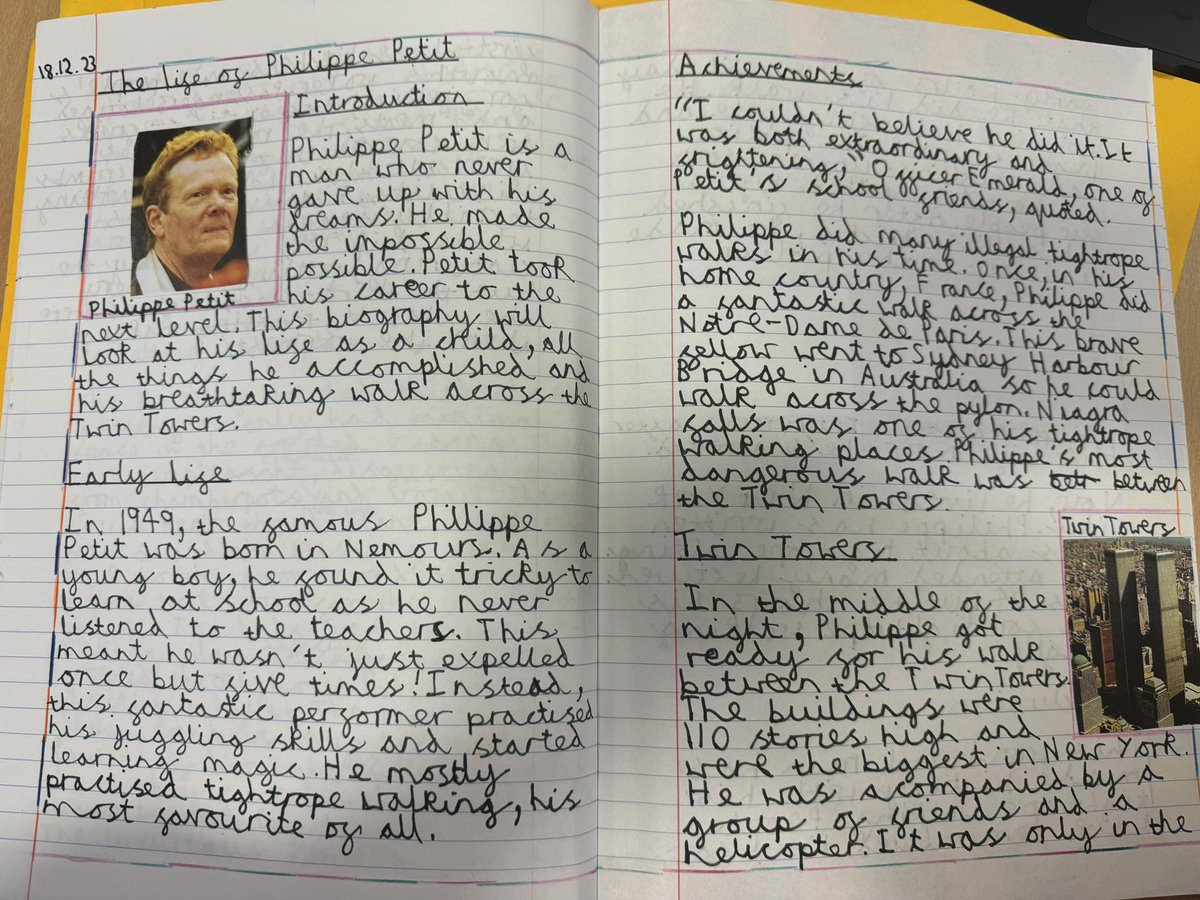 18.12.23
The life of Philippe Petit
Introduction
Philippe Petit is a
man who never
gave up with his
dreams. He made
the impossible
possible. Petit took
his career to the
Philippe Petit
next level. This biography will
look at his life as a child, all
the things he accomplished and
his breathtaking walk across the
Twin Towers.
Early life
In 1949, the famous Phillippe
Petit was born in Nemours. As a
young boy, he found it tricky to
learn at school as he never
listened to the teachers. This
meant he wasn't just expelled
once but five times! Instead,
this fantastic performer practised
his juggling skills and started
learning magic. He mostly
practised tightrope walking, his
most favourite of all.
Achievements
"I couldn't believe he did it. It
was both extraordinary and
frightening," Officer Emerald, one of
Petit's school friends, quoted.
Philippe did many illegal tightrope
walks in his time. Once, in his
home country, France, Philippe did
a fantastic walk across the
Notre-Dame de Paris. This brave
fellow went to Sydney Harbour
Bridge in Australia so he could
walk across the pylon. Niagra
falls was one of his tightrope
walking places. Philippe's most
dangerous walk was between
the Twin Towers.
Twin Towers
Twin Towers
In the middle of the
night, Philippe got
ready for his walk
between the Twin Towers.
The buildings were
110 stories high and
were the biggest in New York.
He was acompanied by a
group of friends and a
helicopter. It was only in the